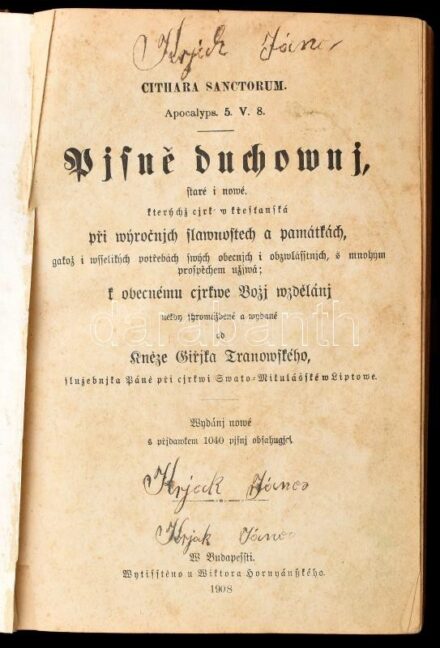 Krják János
CITHARA SANCTORUM.
Apocalyps. 5. V. 8.
Pjsně duchownj,
staré i nowé,
kterýchž cjrkew křesťanská
při wýročnjch slawnostech a památkách,
gakož i wsselikých potřebách swých obecnjch i obzwlásstnjch, s mnohym
prospěchem užjwá;
k obecnému cjrkwe Božj wzdělánj
někdy shromážděné a wydané
od
Kněze Giřjka Tranowského,
služebnjka Páně při cjrkwi Swato-Mikulášské w Liptowe.
darabanth
Wydánj nowé
s přjdawkem 1040 pjsnj obsahugjcj.
Krjak János
Krjak János
W Budapessti.
Wytisstěno u Wiktora Hornyánszkého.
1908